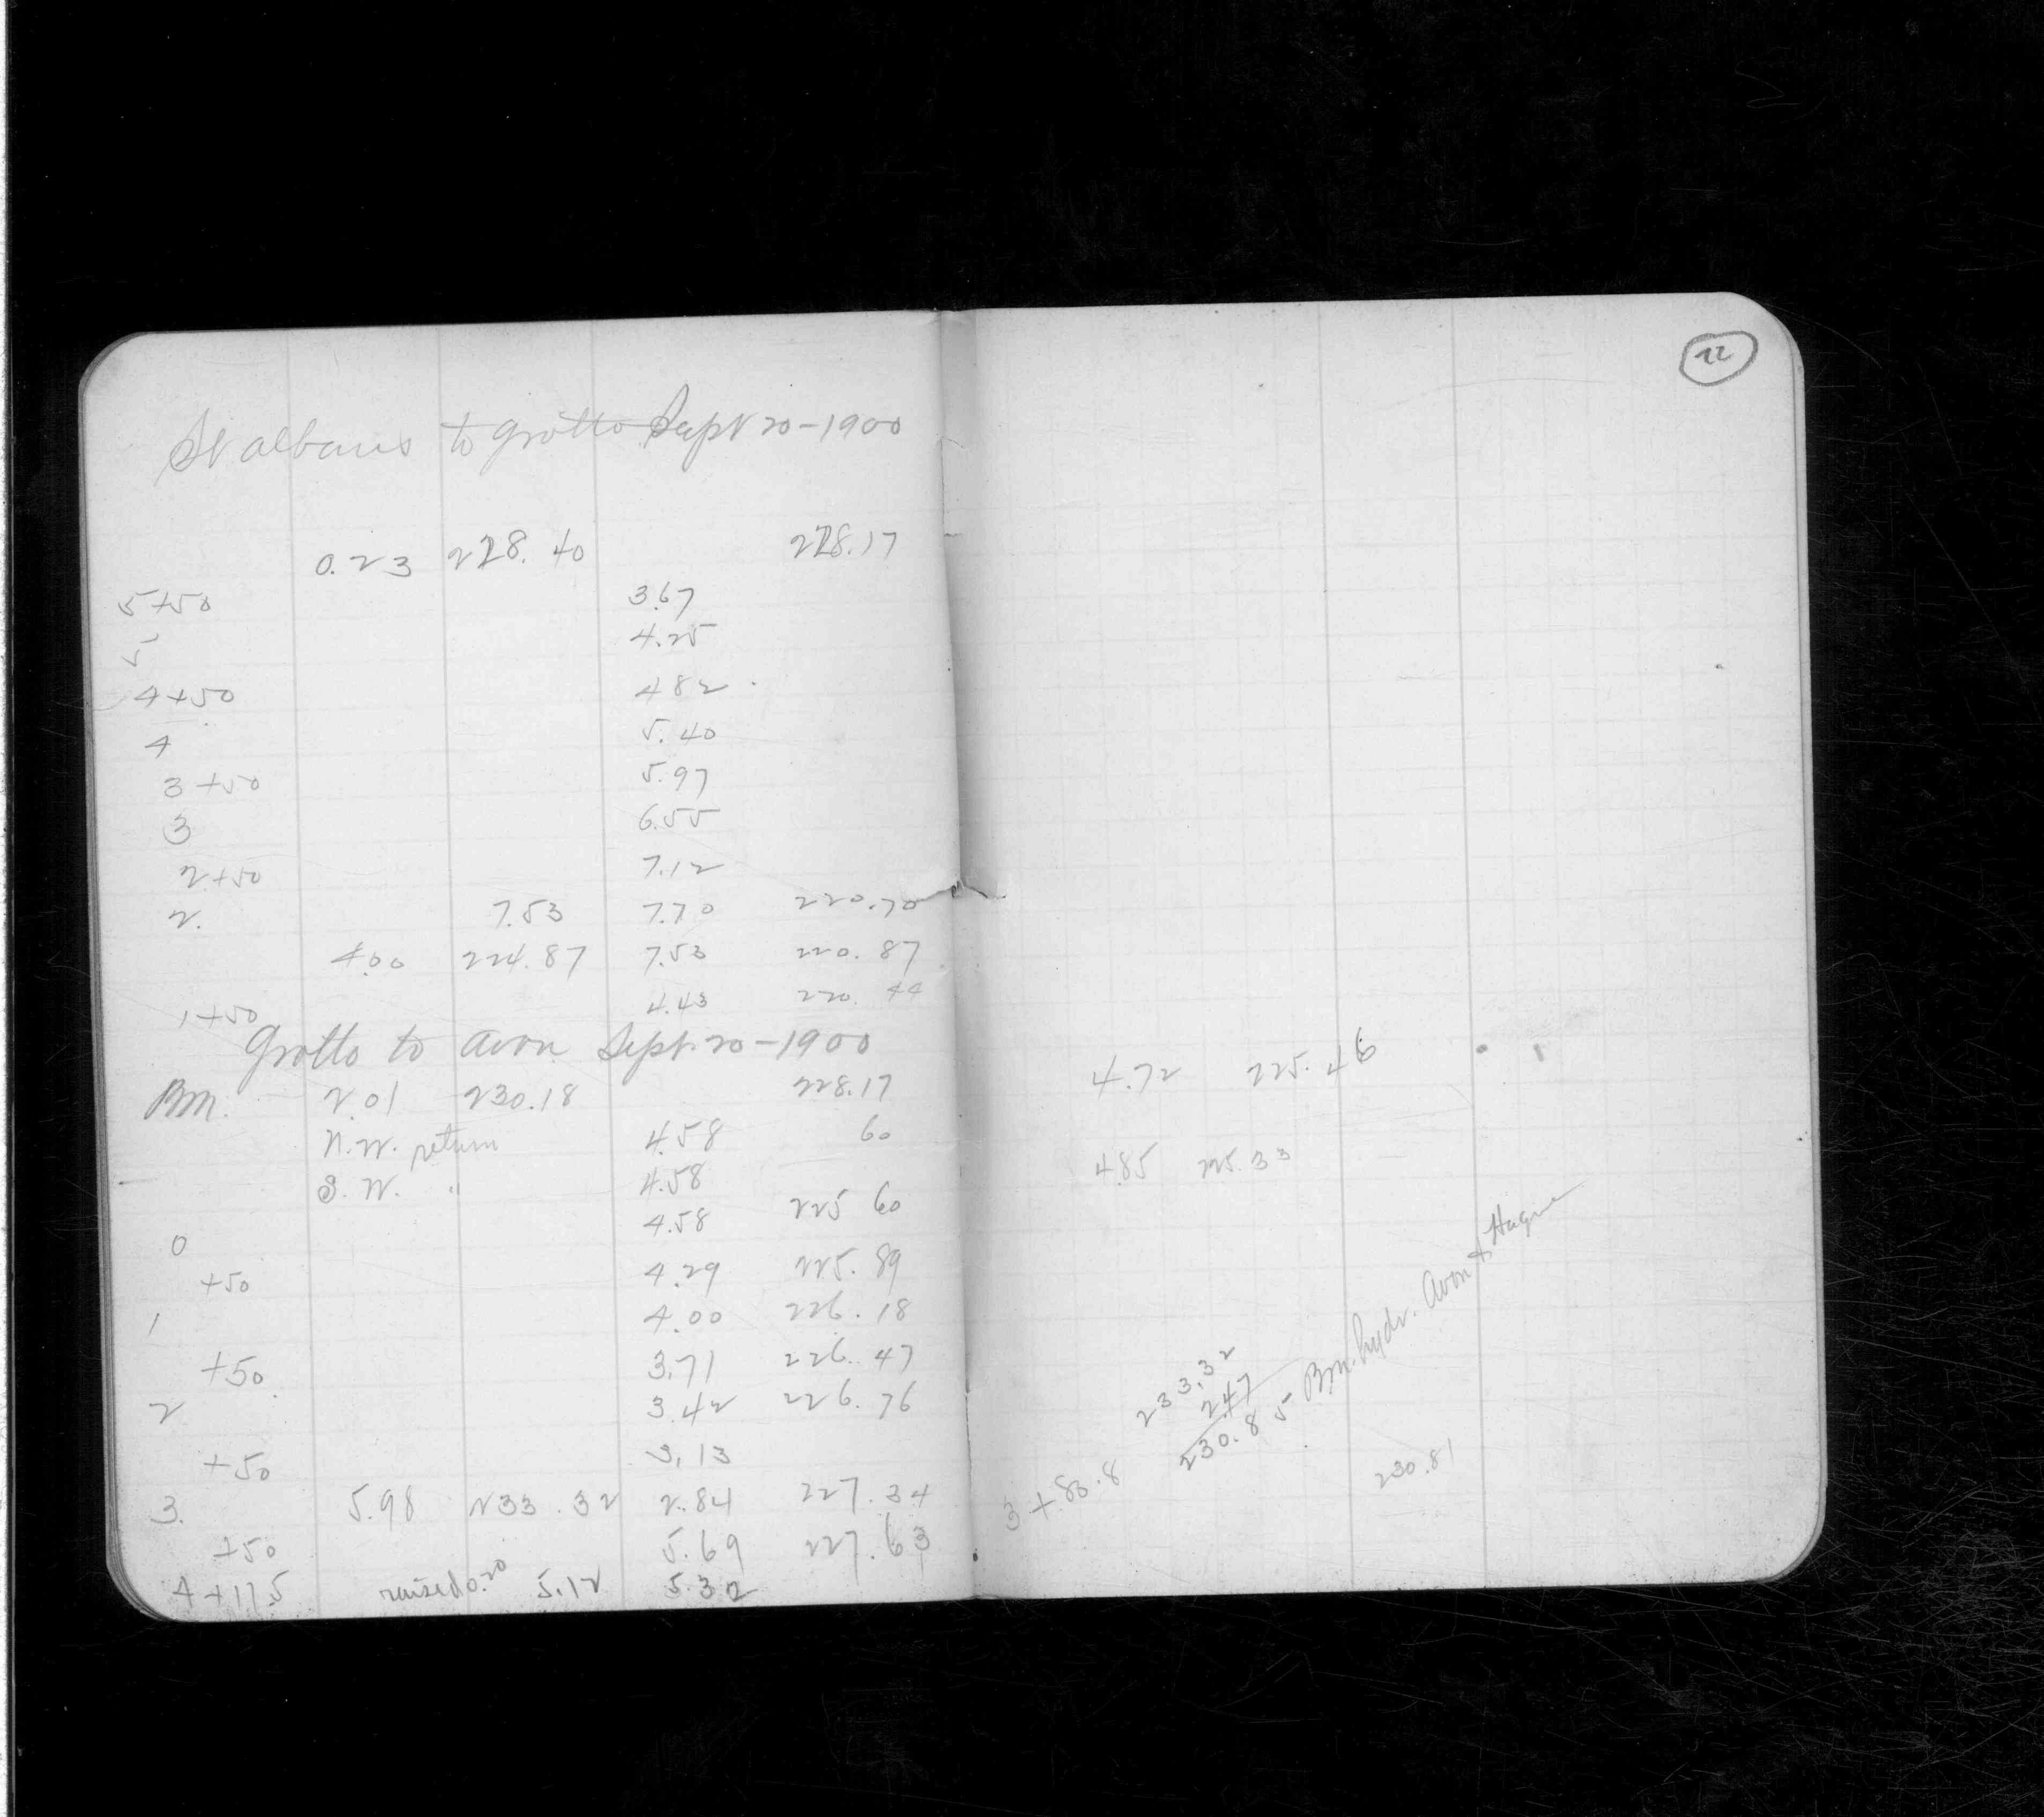 St albans to Grotto Sept 20-1900
0.23 228.40 228.17
5+50 3.67
5 4.25
4+50 482
4 5.40
3+50 5.97
3 6.55
2+50 7.12
2. 7.53 7.70 220.70
4.00 224.87 7.53 220.87
1+50 4.43 220.44
Grotto to Avon Sept. 20-1900
Bm. 2.01 230.18 228.17
N.W. return 4.58 60
S.W. " 4.58
0 4.58 225 60
+50 4.29 225.89
1 4.00 226.18
+50 3.71 226.47
2 3.42 226.76
+50 3.13
3. 5.98 233.32 2.84 227.34
+50 5.69 227.63
4+17.5 raised 0.20 5.12 5.32
22
4.72 225.46
4.85 225.33
233.32
2.47
230.85 Bm. hydr. Avon & Hague
3+83.8
230.81